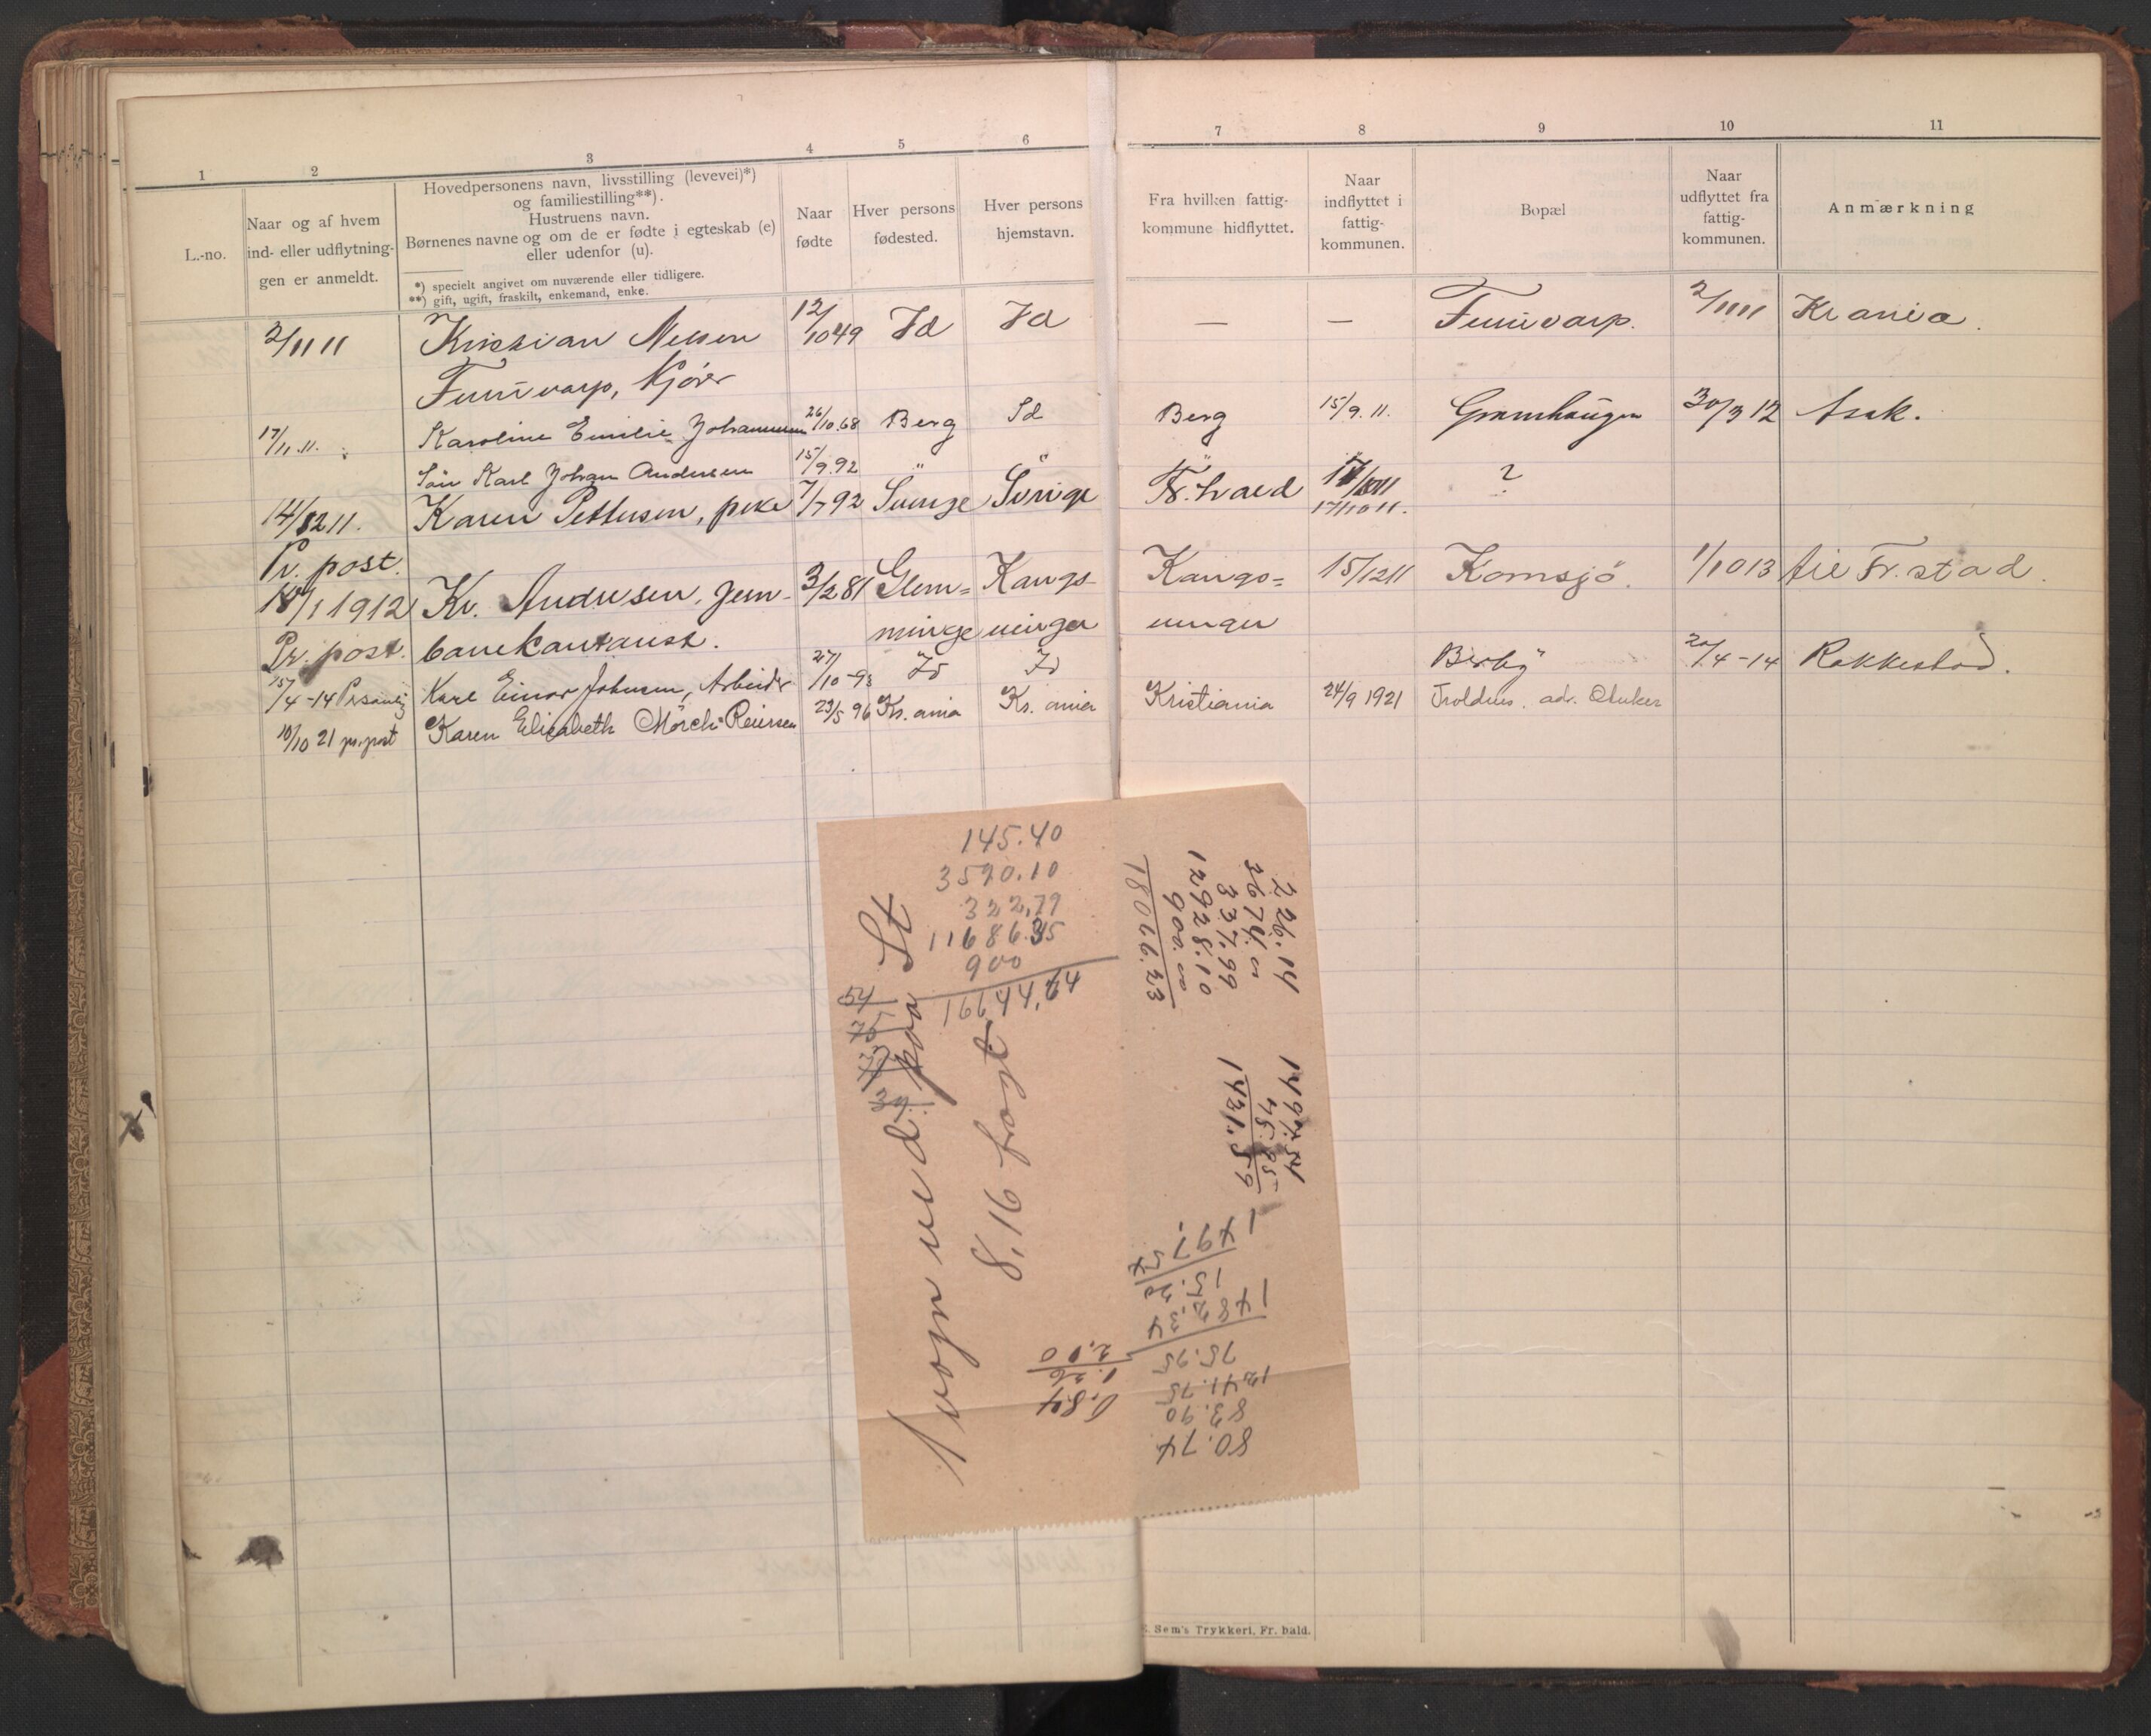 1 2 3 4 5 6 7 8 9 10 11
L.-no.
Naar og af hvem
ind- eller udflytning-
gen er anmeldt.
Hovedpersonens navn, livsstilling (levevei)*)
og familiestilling**).
Hustruens navn.
Børnenes navne og om de er fødte i egteskab (e)
eller udenfor (u).
*) specielt angivet om nuværende eller tidligere.
**) gift, ugift, fraskilt, enkemand, enke.
Naar
fødte
Hver persons
fødested.
Hver persons
hjemstavn.
Fra hvilken fattig-
kommune hidflyttet.
Naar
indflyttet i
fattig-
kommunen.
Bopæl
Naar
udflyttet fra
fattig-
kommunen.
Anmærkning
2/11 11 Kristian Nelsen 12/10 49 Id Id — — 2/11 11 Kr ania.
17/11. 11. Karoline Emilie Johannesen 26/10. 68 Berg Id Berg 15/9. 11. Grønnhaugen 30/3 12 Asak.
Søn Karl Johan Andersen 15/9. 92 " " "
14/12 11. Karen Pettersen, pike 7/7 92 Sverige Sverige Fr. hald ?
17/10 11.
Pr. post.
18/1 1912 Kr. Andresen, jern- 3/2 81 Glem= Kongs- Kongs= 15/12 11 Kornsjö. 1/10 13 til Fr. stad.
Pr. post. banekontorist. minge vinger vinger
15/4 -14 Personlig Karl Einar Johnsen, Arbeider 27/10 -93 Id Id Berby 20/4 -14 Rakkestad.
10/10 21 pr. post Karen Elisabeth Mörch-Reiersen 23/5 96 Kr. ania Kr. ania Kristiania 24/9 1921 adr.
145.40
3590.10
322,79
11686.35
900
16644,64
54
75
39
1 vogn ved paa St
8,16 fragt
226.14
2674.00
337.99
12928.10
900.00
18066.23
1497.54
75.95
1421.59
1497.54
15.20
1482.34
75.95
1241.75
83.90
80.74
2,10
1.26
0.84
Sem's Trykkeri, Fr. hald.